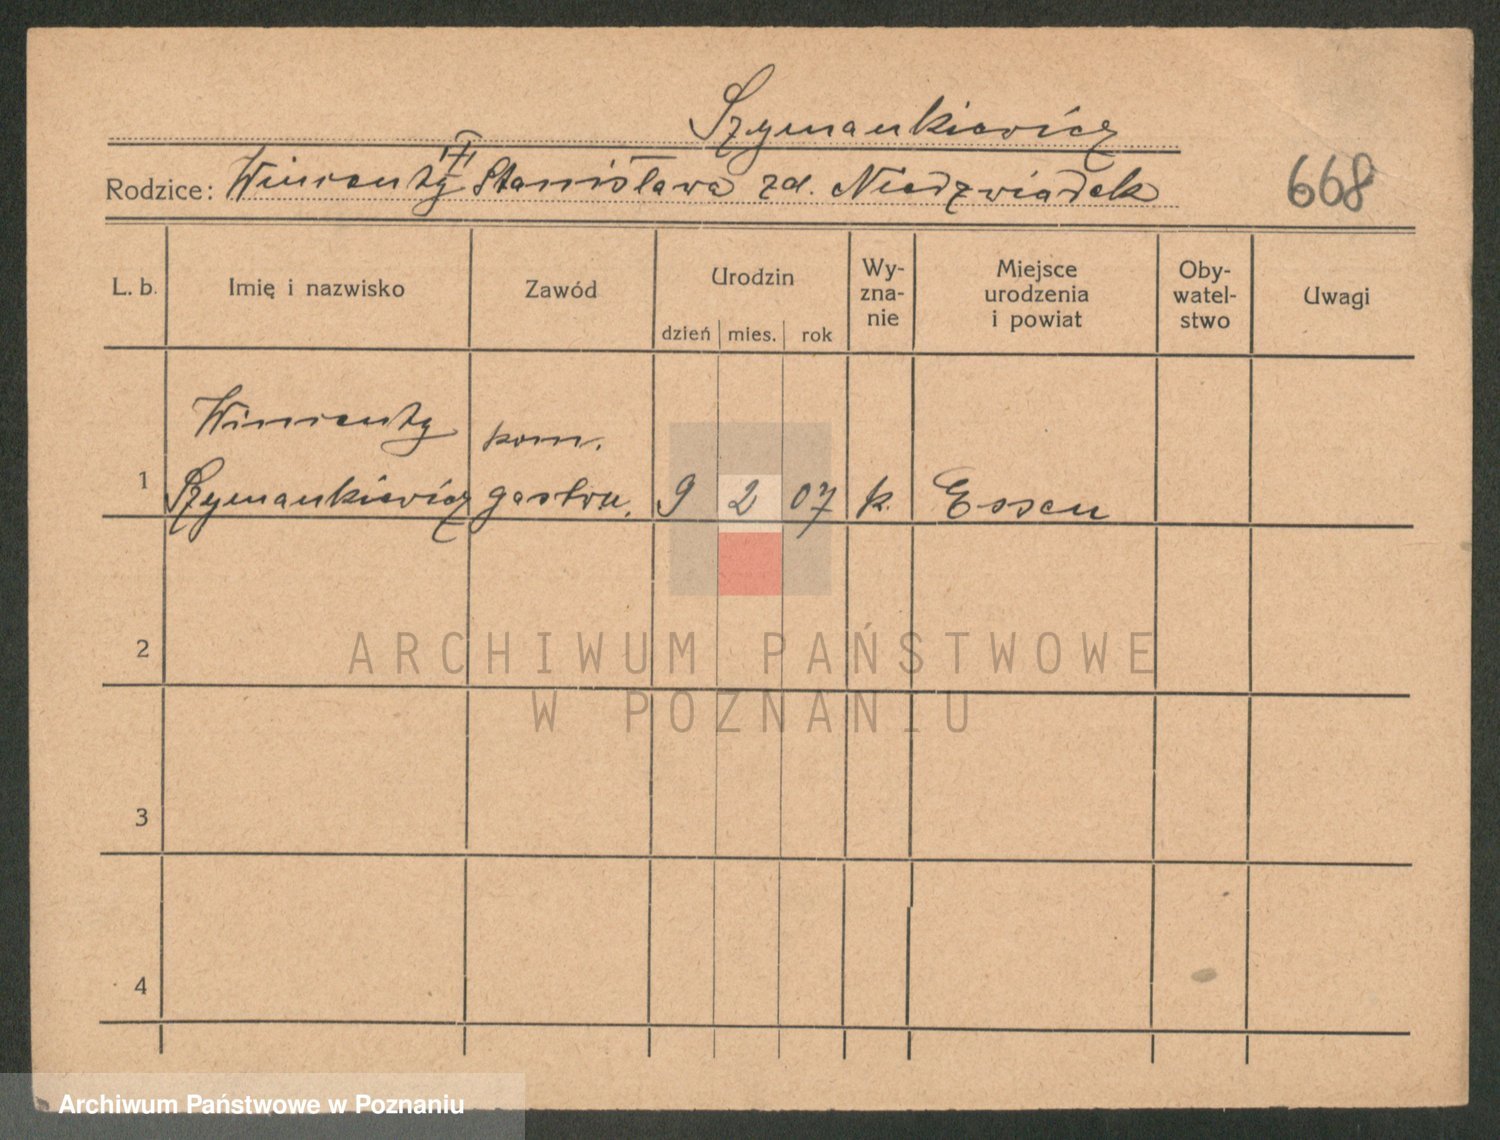 Szymankiewicz
Rodzice: Wincenty III Stanisława zd. Niedzwiadek
668
L. b. Imię i nazwisko Zawód Urodzin Wy-zna-nie Miejsce urodzenia i powiat Oby-watel-stwo Uwagi
dzień mies. rok
Wincenty kom.
1 Szymankiewicz gastrn. 9 2 07 k. Essen
2
ARCHIWUM PAŃSTWOWE
W POZNANIU
3
4
Archiwum Państwowe w Poznaniu